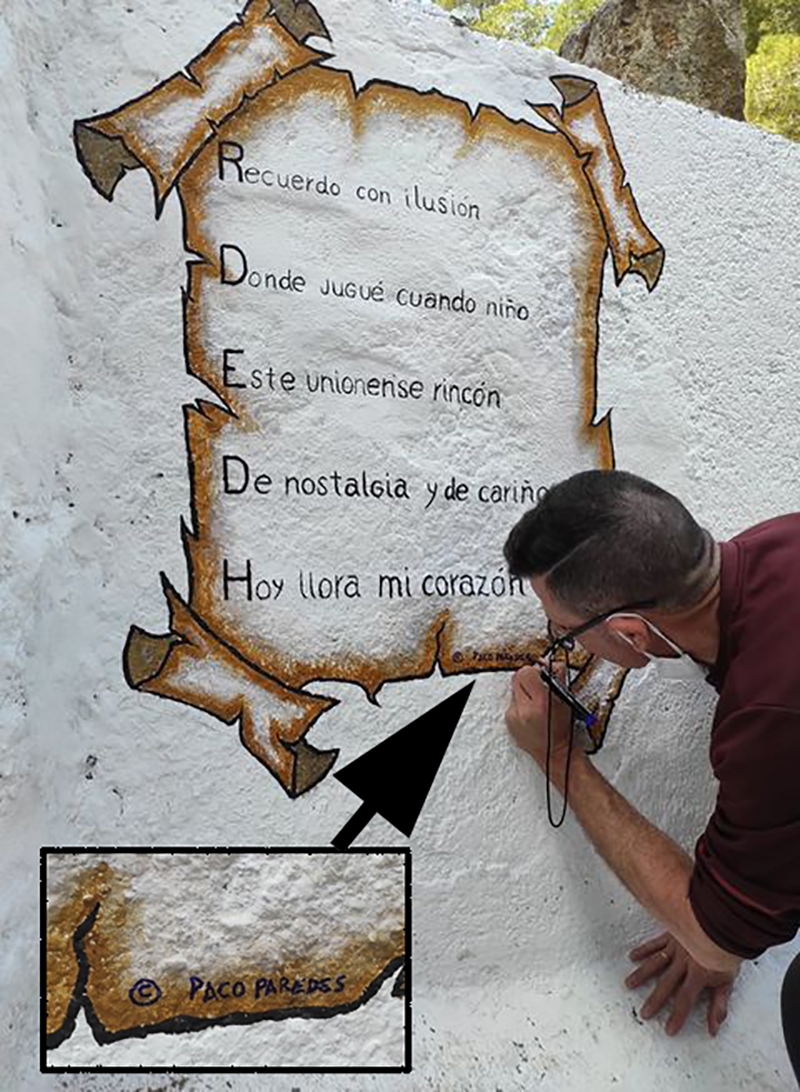 Recuerdo con ilusión
Donde jugué cuando niño
Este unionense rincón
De nostalgia y de cariño
Hoy llora mi corazón
© PACO PAREDES
© PACO PAREDES